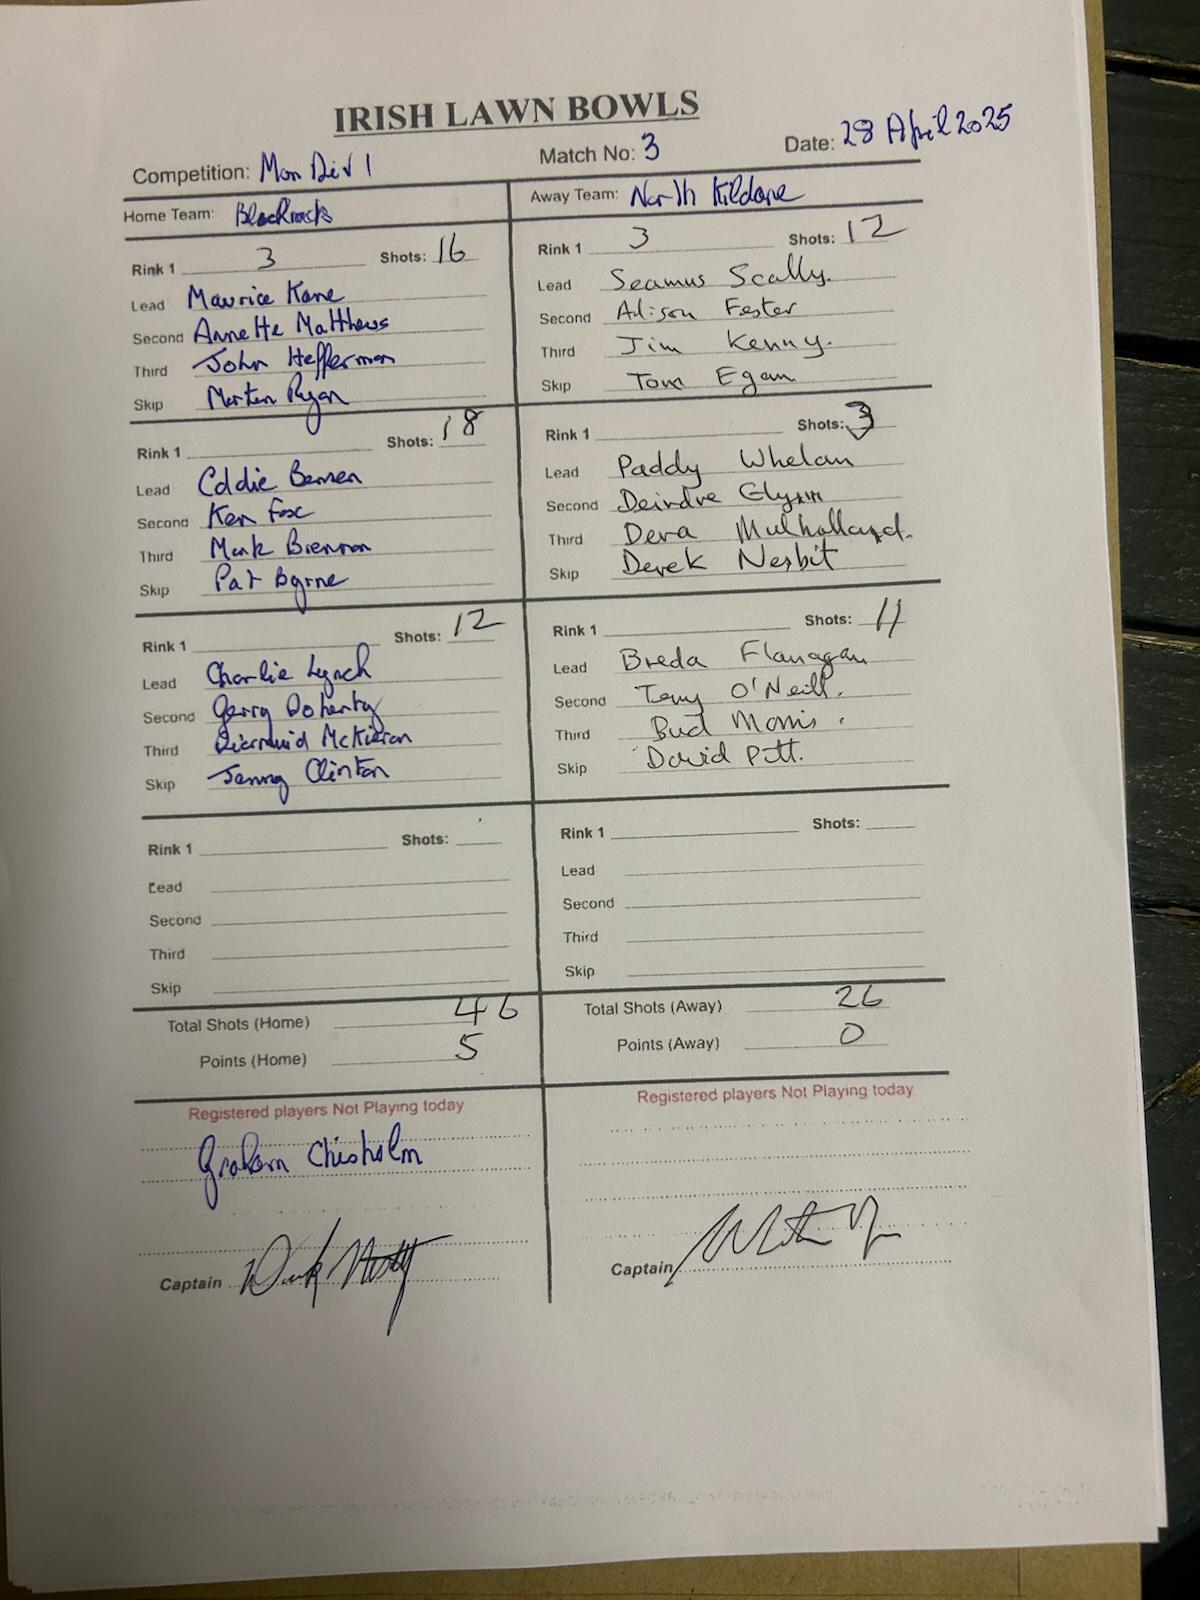 IRISH LAWN BOWLS
Competition: Mon Div 1 Match No: 3 Date: 28 April 2025
Home Team: Blackrock Away Team: North Kildare
Rink 1 3 Shots: 16 Rink 1 3 Shots: 12
Lead Maurice Kane Lead Seamus Scally.
Second Annette Matthews Second Alison Fester
Third John Heffernan Third Jim Kenny.
Skip Martin Ryan Skip Tom Egan
Rink 1 Shots: 18 Rink 1 Shots: 3
Lead Eddie Lead Paddy Whelan
Second Ken Fox Second Deirdre Glynn
Third Mark Brennan Third Dera Mulholland.
Skip Pat Byrne Skip Derek Nesbit
Rink 1 Shots: 12 Rink 1 Shots: 11
Lead Charlie Lynch Lead Breda Flanagan
Second Gerry Doherty Second Tony O'Neill.
Third Diarmuid McKieran Third Bud Morris.
Skip Clinton Skip David Pitt.
Rink 1 Shots: Rink 1 Shots:
Lead Lead
Second Second
Third Third
Skip Skip
Total Shots (Home) 46 Total Shots (Away) 26
Points (Home) 5 Points (Away) 0
Registered players Not Playing today Registered players Not Playing today
Graham Chisholm
Captain Captain